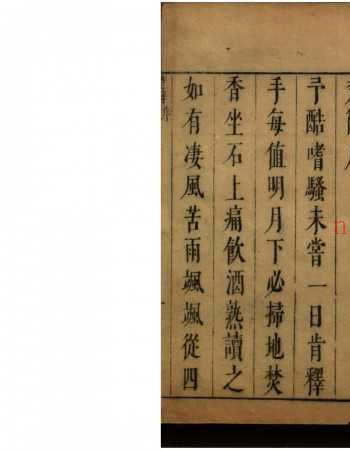 予酷嗜騷未嘗一日肯釋
手每值明月下必掃地焚
香坐石上痛飲酒熟讀之
如有凄風苦雨颯颯從四